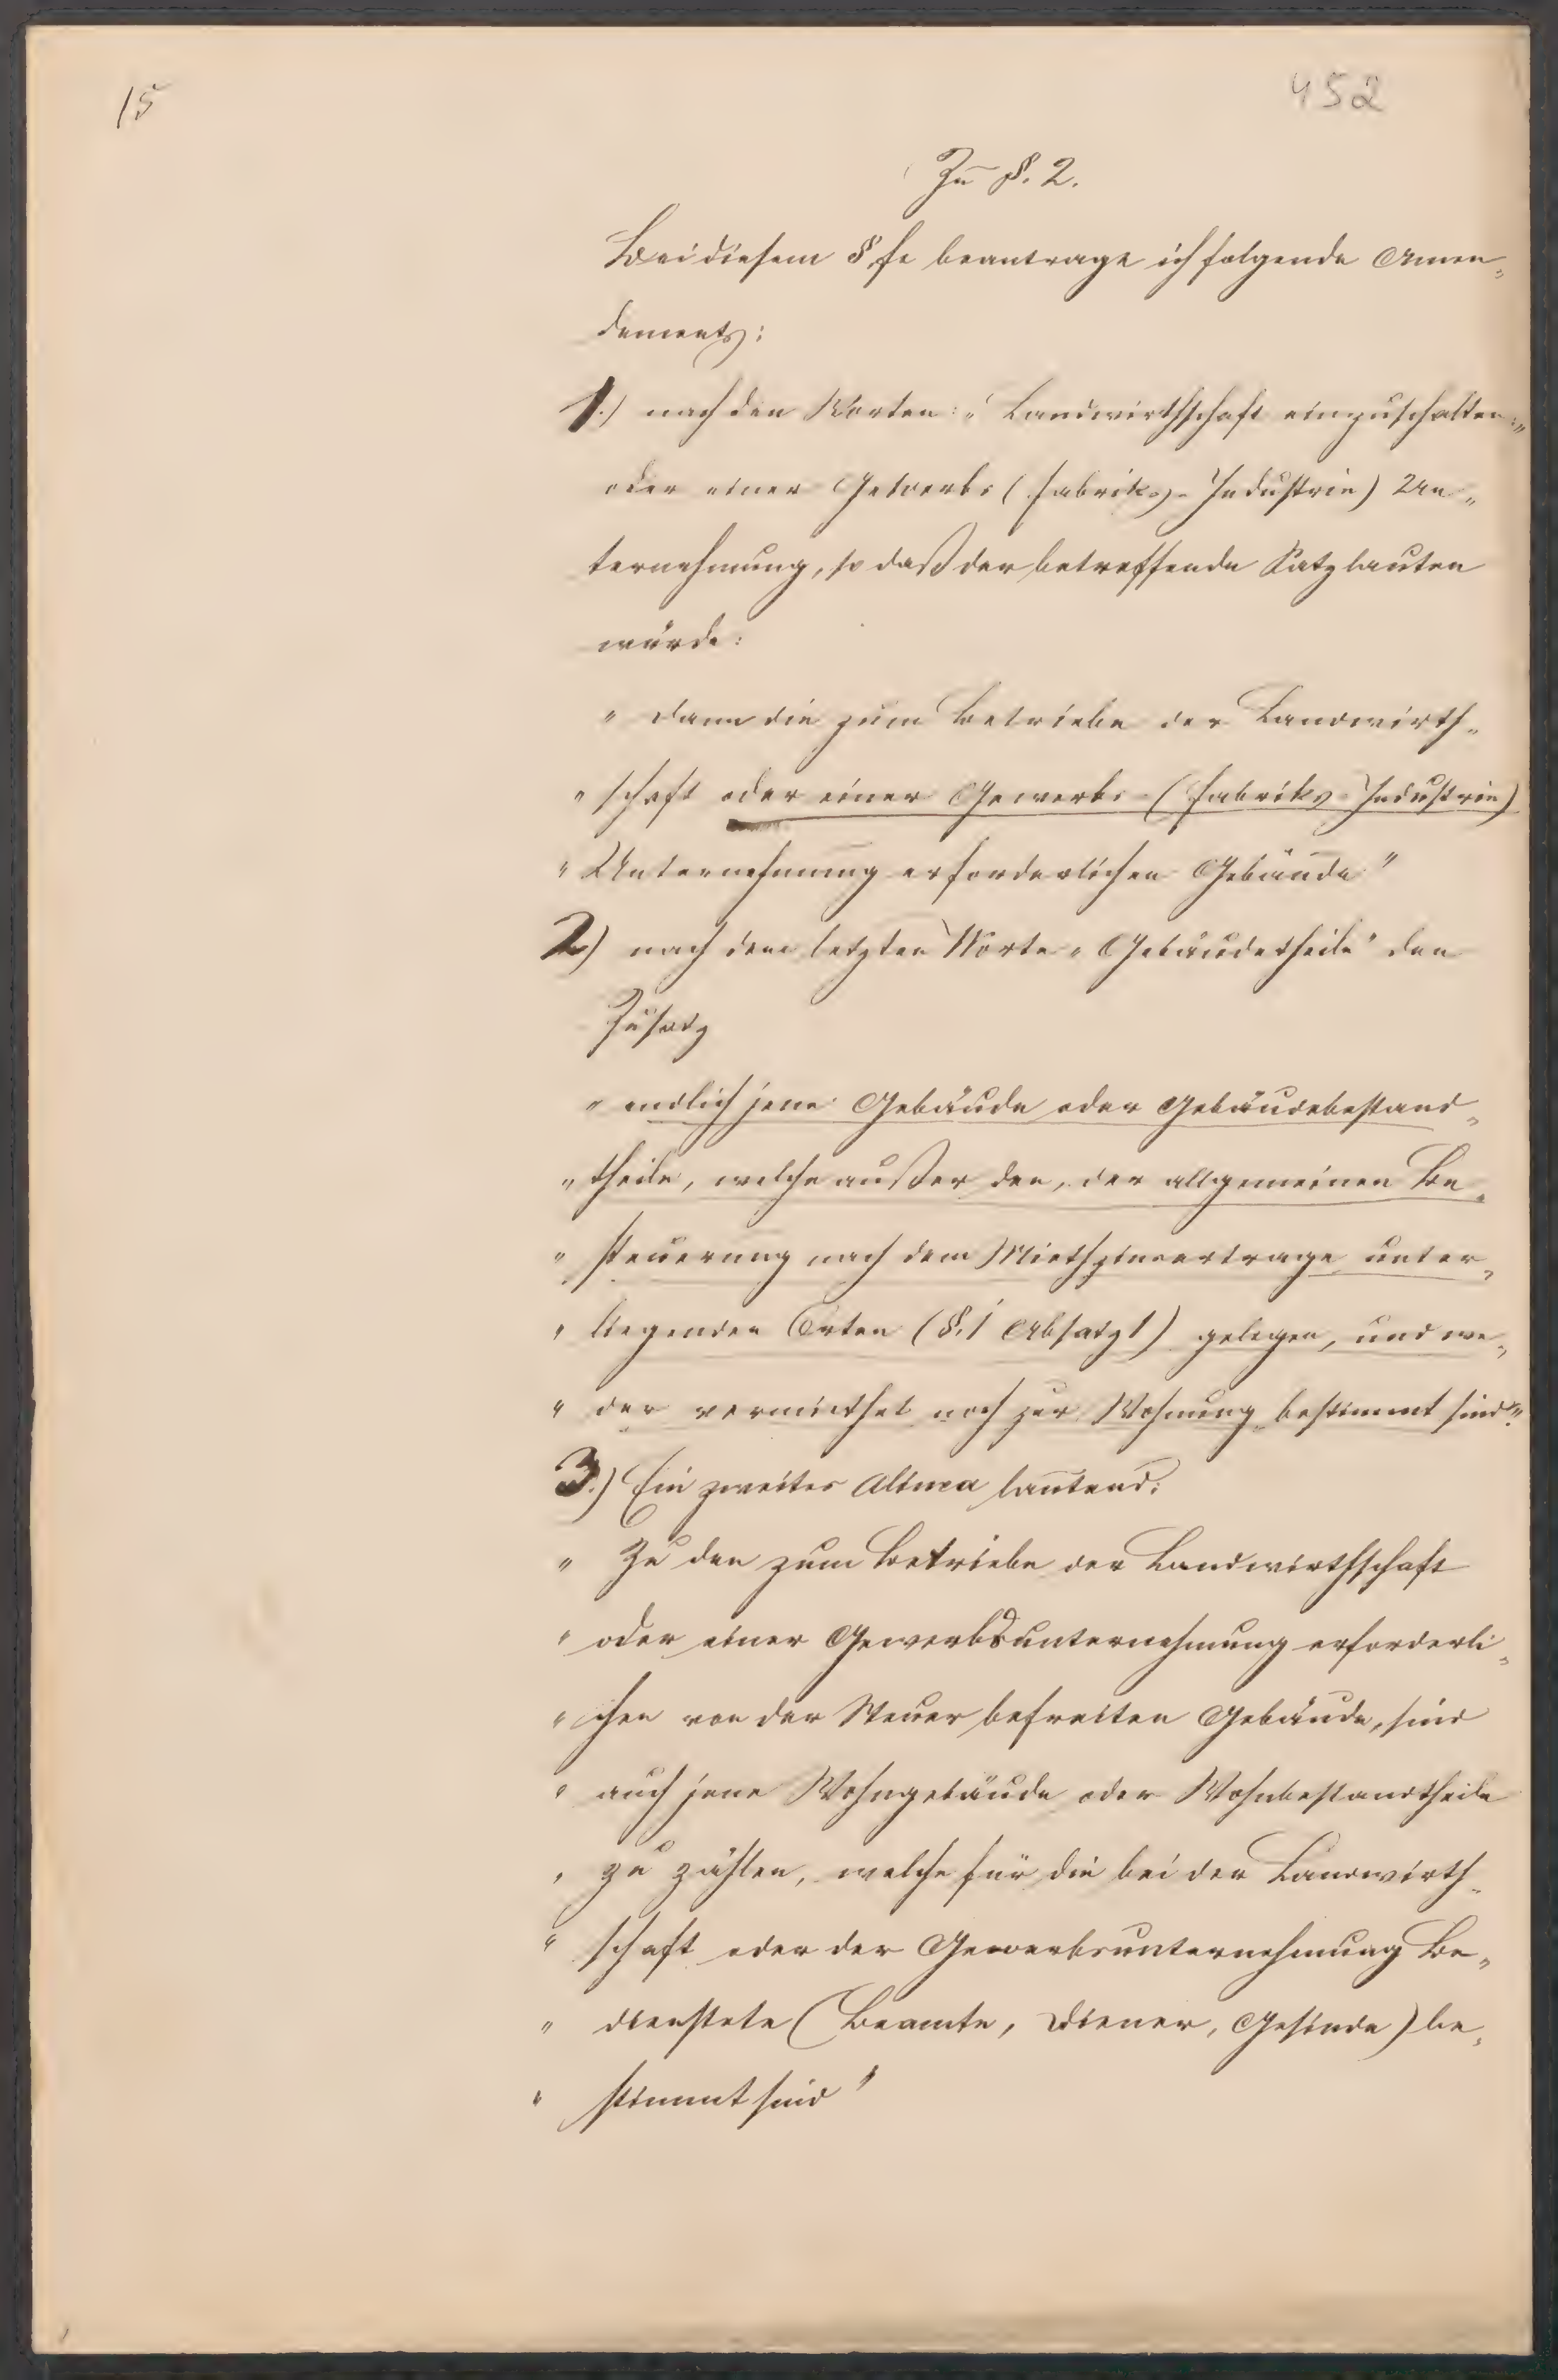 15
452
Zu §. 2.
Bei diesem §fe beantrage ich folgende Amen„
dements:
1.) nach den Worten: „Landwirthschaft einzuschalten:"
oder einer Gewerbs (Fabriks-Industrie) Un„
ternehmung, so daß der betreffende Satz lauten
würde:
„ dann die zum Betriebe der Landwirth„
„ schaft oder einer Gewerbs-(Fabriks-Industrie)
„ Unternehmung erforderlichen Gebäude"
2) nach dem letzten Worte „Gebäudetheile" den
Zusatz
„ endlich jene Gebäude oder Gebäudebestand„
„ theile, welche außer den, der allgemeinen Be„
„ steuerung nach dem Miethzinsertrage unter„
„ liegenden Orten (§. 1 Absatz 1) gelegen, und we„
„ der vermiethet noch zur Wohnung bestimmt sind."
3.) Ein zweites Alinea lautend:
„ Zu den zum Betriebe der Landwirthschaft
„ oder einer Gewerbsunternehmung erforderli„
„ chen von der Steuer befreiten Gebäude, sind
„ auch jene Wohngebäude oder Wohnbestandtheile
„ zu zählen, welche für die bei der Landwirth„
„ schaft oder der Gewerbsunternehmung Be„
„ dienstete (Beamte, Diener, Gesinde) be„
„ stimmt sind"